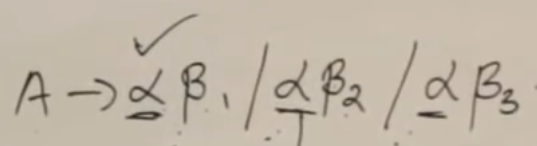 A → αβ₁ / αβ₂ / αβ₃